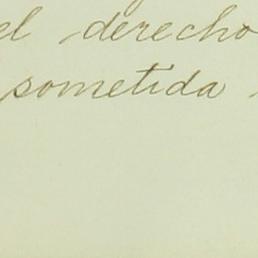 el derecho
sometida